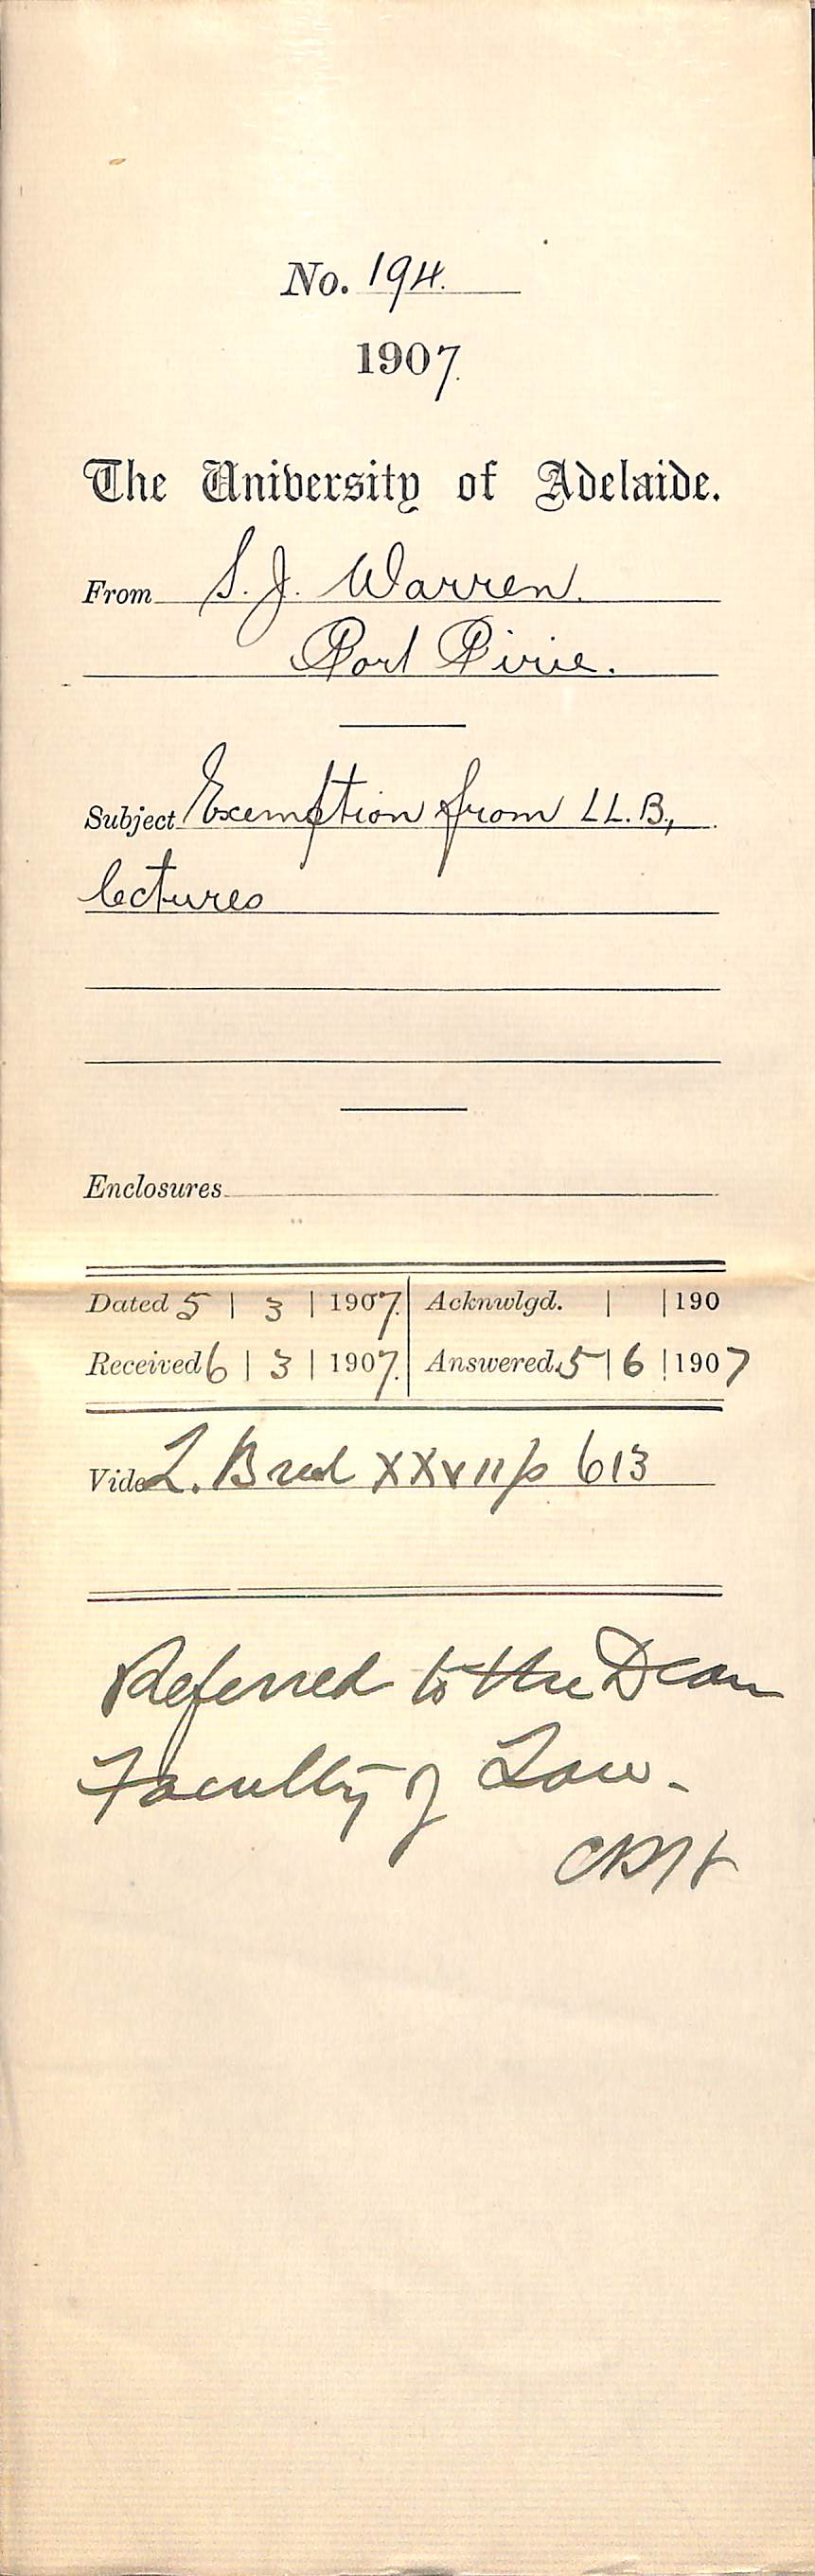 No. 194.
1907.
The University of Adelaide.
From S. J. Warren.
Port Pirie.
Subject Exemption from LL.B.,
lectures
Enclosures
Dated 5 | 3 | 1907. Acknwlgd. | | 190
Received 6 | 3 | 1907. Answered 5 | 6 | 1907
Vide L. XXVII p 613
Referred to the Dean
Faculty of Law.